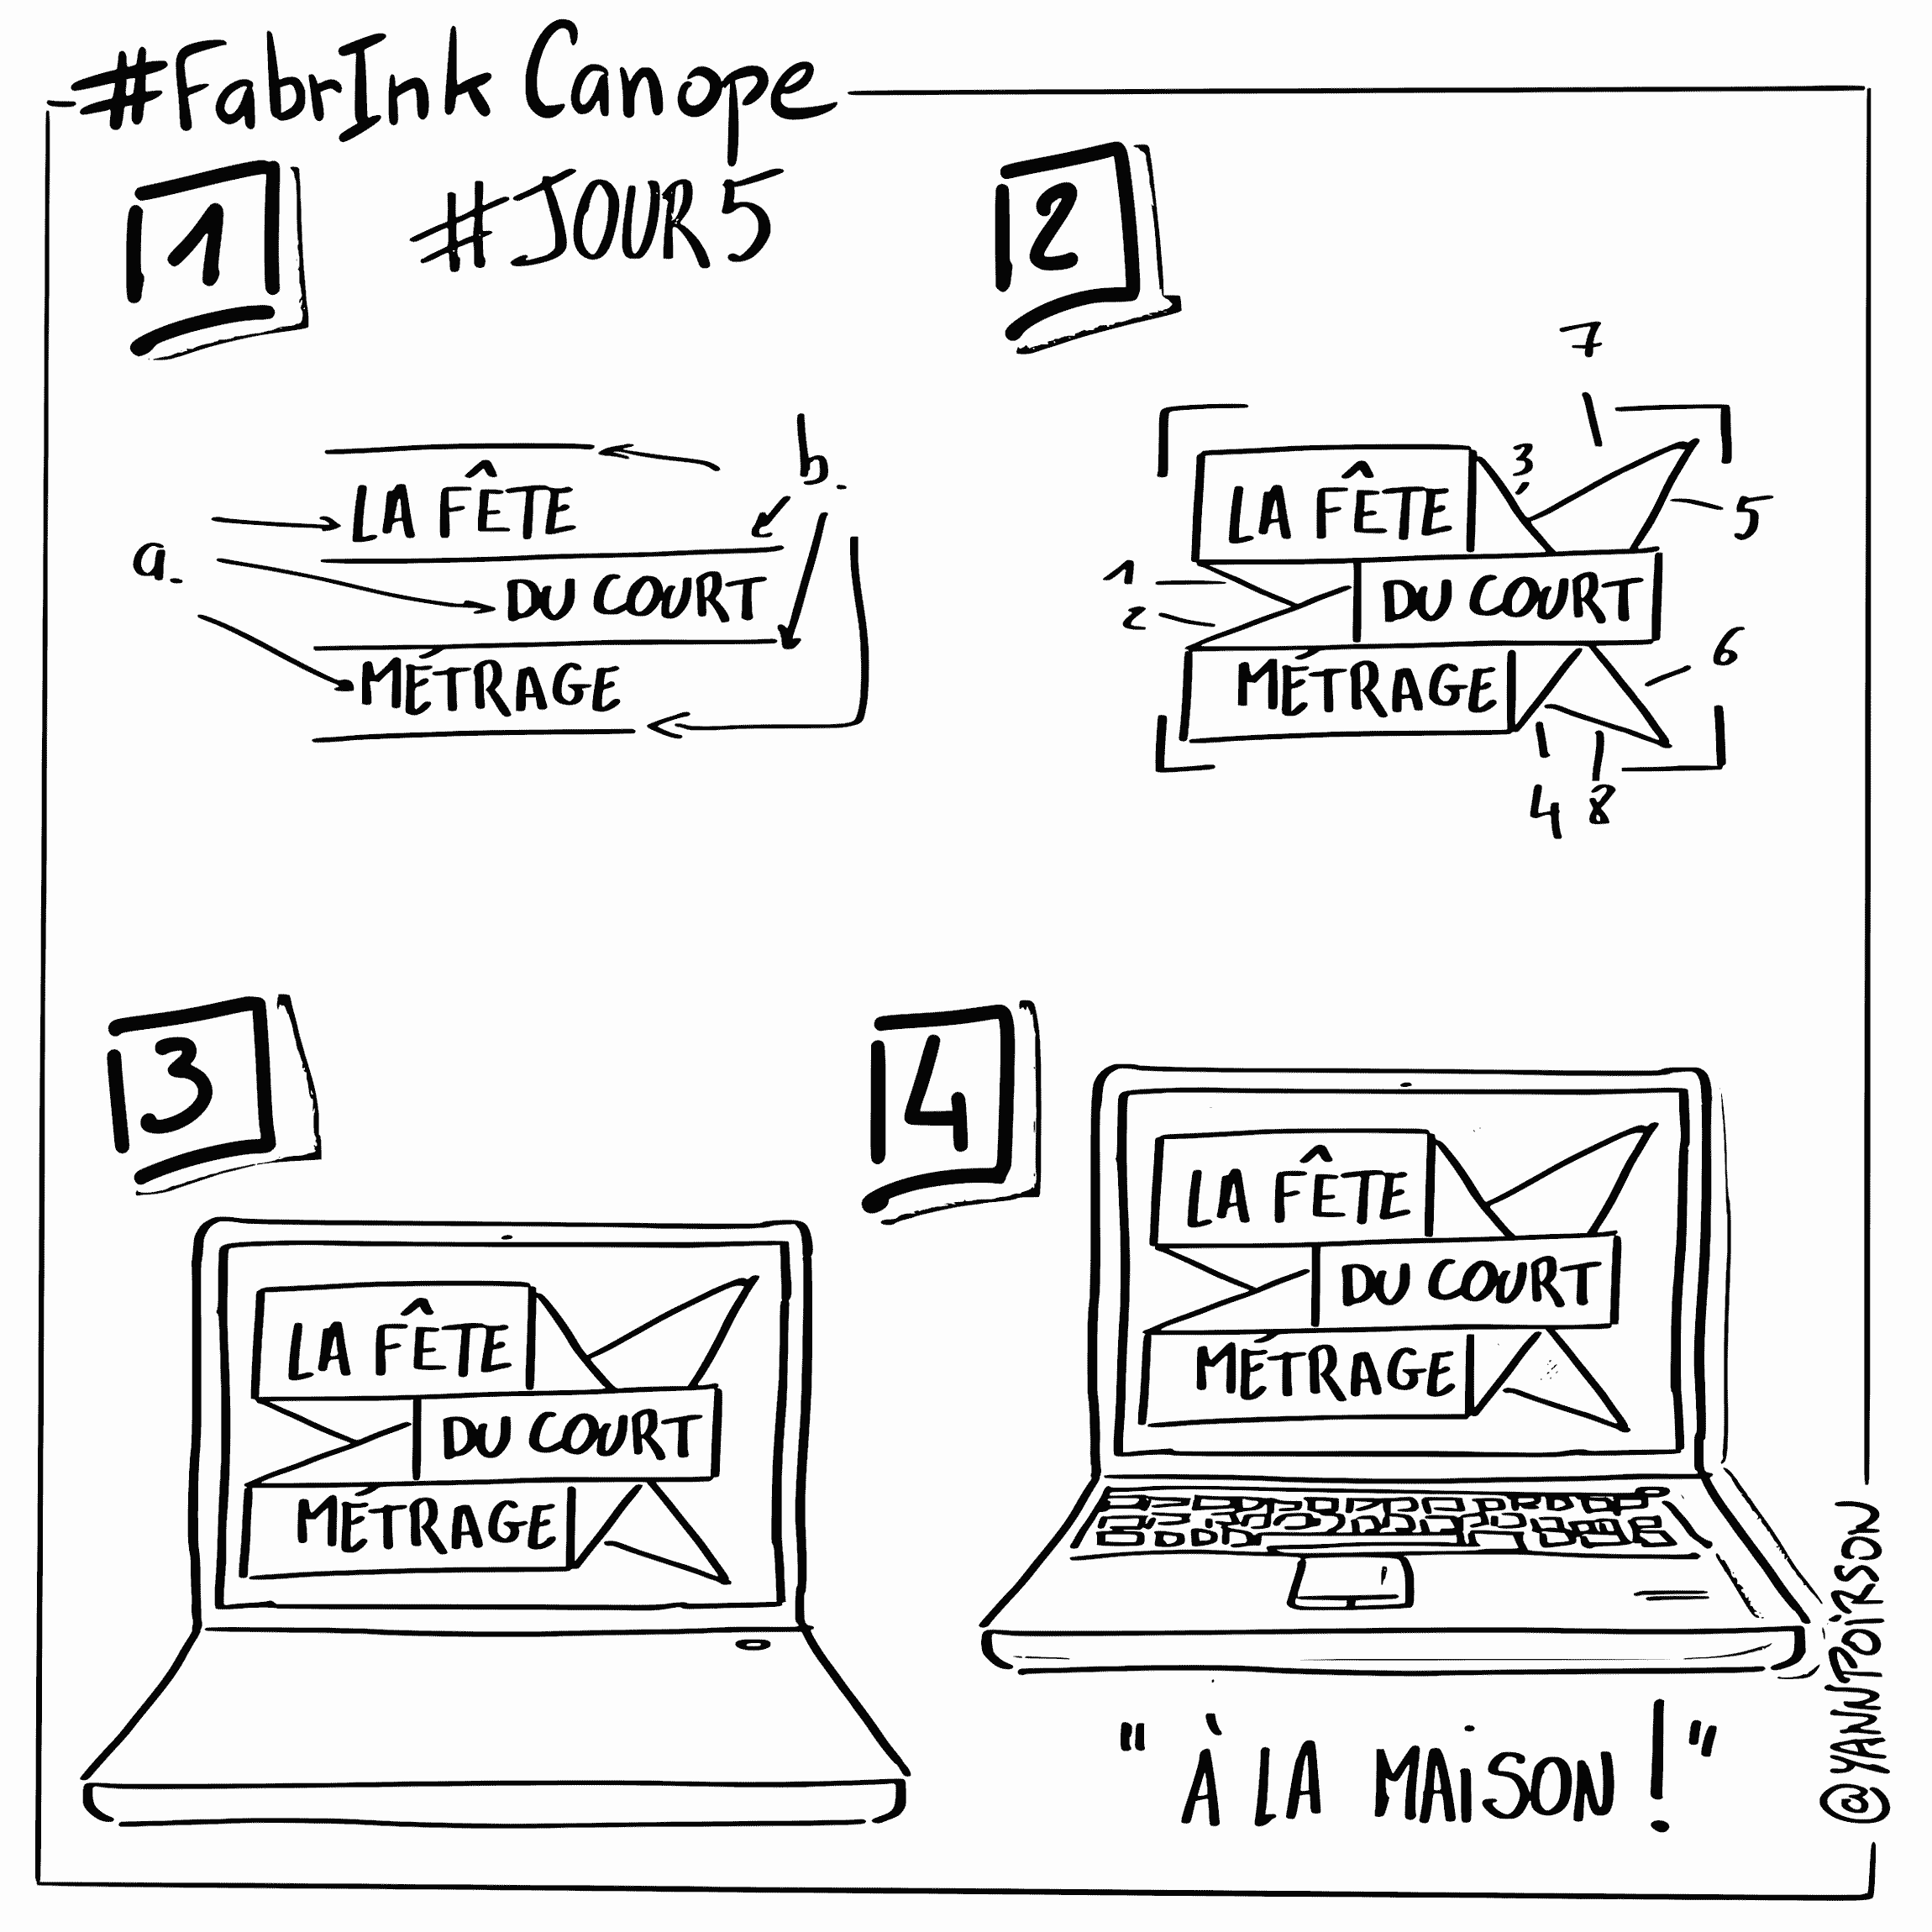 #FabrInk Canope
1
#JOUR5
2
a.
b.
LA FÊTE
DU COURT
MÉTRAGE
7
3
LA FÊTE
5
1
DU COURT
2
6
MÉTRAGE
4 8
3
LA FÊTE
DU COURT
MÉTRAGE
4
LA FÊTE
DU COURT
MÉTRAGE
"À LA MAiSON !"
@YANNPOiRSON